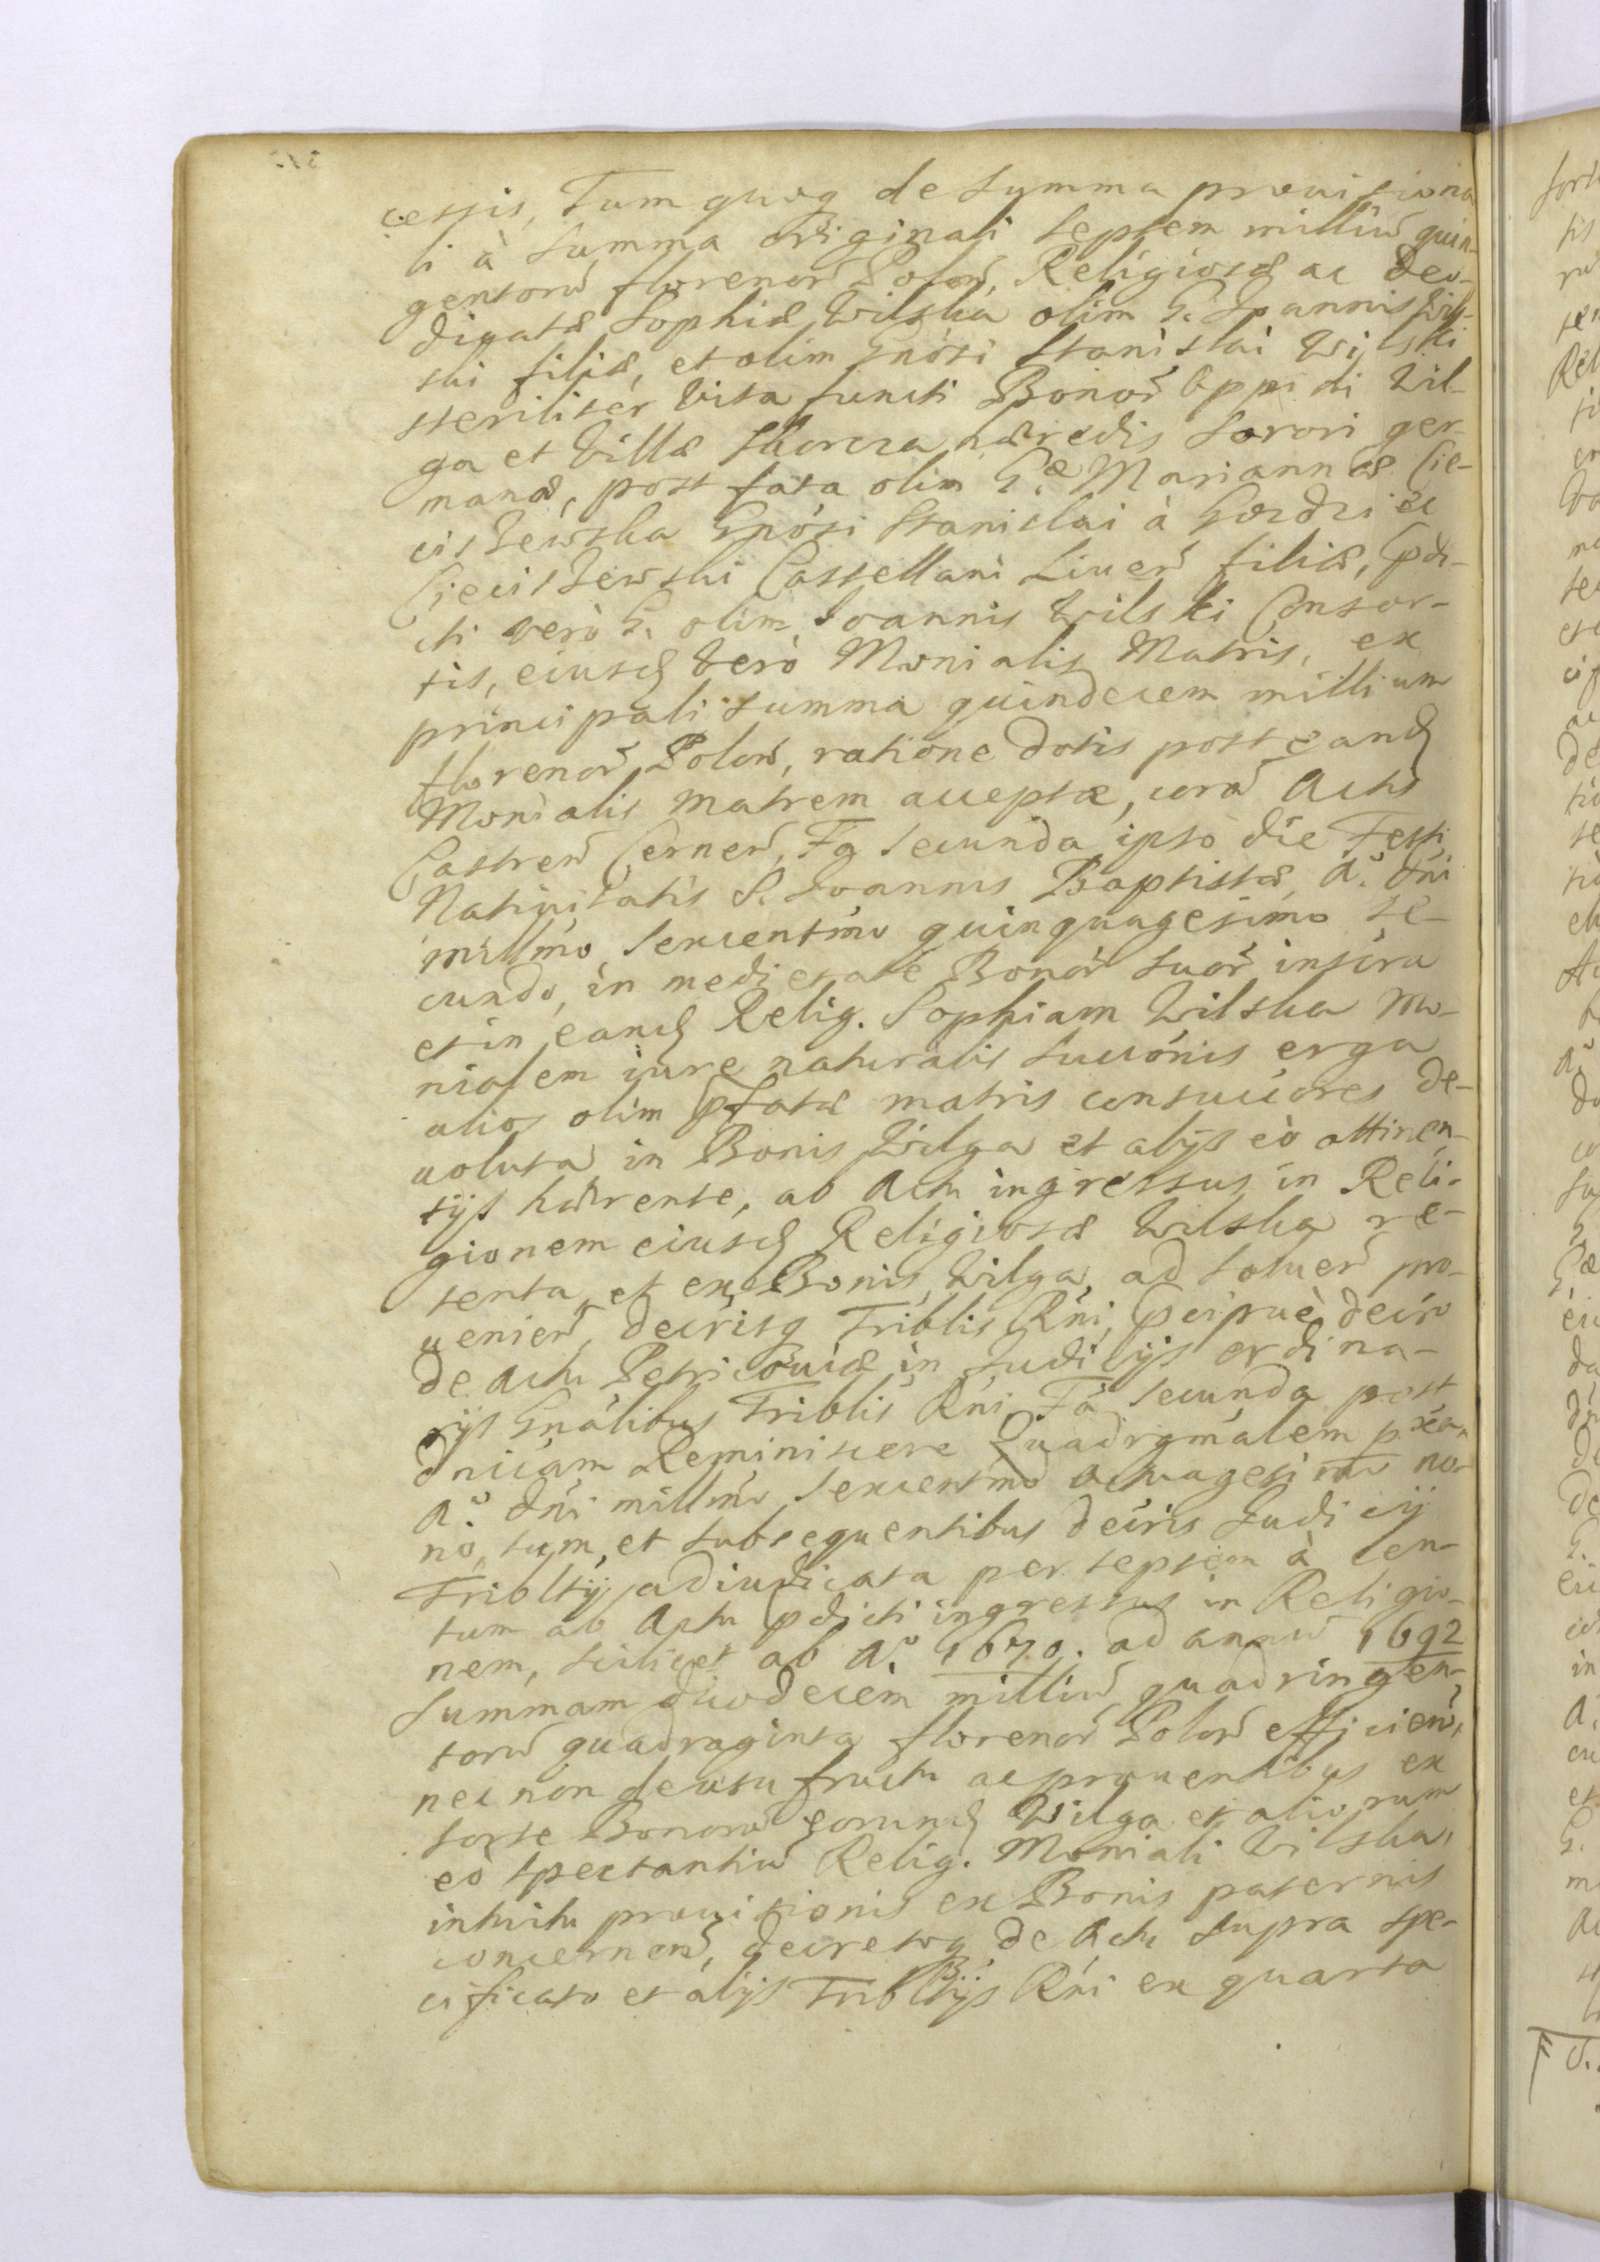 cessis, Tum quoq de summa prouisiona
li à summa originali septem milliũ quin-
gentorũ florenor̃ Polon̄, Religiosæ ac Deo-
dicatæ Sophiæ Wilska olim G. Joannis Wil-
ski filiæ, et olim Gnósi Stanislai Wilski
steriliter vita functi Bonor̃ Oppidi Wil-
ga et Villæ Skorcza hæredis sorori ger-
manæ, post fata olim G.æ Mariannæ Cie-
ciszewska Gnósi Stanislai à
Cieciszewski Castellani Liuen̄ filiæ, pdi-
cti verò G. olim Joannis Wilski Consor-
tis, eiusd verò Monialis Matris, ex
principali summa quindecem millium
florenor̃ Polon̄, ratione dotis post eand
Monialis matrem acceptæ, corã Actis
Castren̄ Cernen̄, Fa secunda ipso die Festi
Natiuitatis S. Joannis Baptistæ, A.o Dni
millmo sexcentmo quinquagesimo se-
cundo, in medietate Bonor̃ suor̃ inscra
et in eand Relig. Sophiam Wilska Mo-
nialem iure naturalis succónis erga
alios olim pfatæ matris consuccóres de-
uoluta in Bonis Wilga et alijs eò attinen-
tijs hærente, ab Actu ingressus in Reli-
gionem eiusd Religiosæ Wilska re-
tenta, et ex Bonis Wilga, ad soluen̄ pro-
uenien̄, decrisq Triblis Rni, pcipuè decro
de Actu Petricouiæ in Judicijs ordina-
rijs Gnálibus Triblis Rni Fa secunda post
Dnicam Reminiscere Quadrgmálem pxa
A.o Dni millmo sexcentmo octuagesimo no-
no, tum, et subsequentibus decris Judicij
Tribltij, adiudicata per septem à cen-
tum ab Actu pdicti ingressus in Religio-
nem, scilicet ab A.o 1670. ad annũ 1692
summam duodecem milliũ quadringen-
torũ quadraginta florenor̃ Polon̄ efficien̄,
nec non de usu fructu ac prouentibus ex
sorte Bonorũ eorund Wilga et aliorum
eò spectantiũ Relig. Moniali Wilska,
intuitu prouisionis ex Bonis paternis
concernen̄, decretoq de Actu supra spe-
cificato et alijs Tribltijs Rni ex quarta